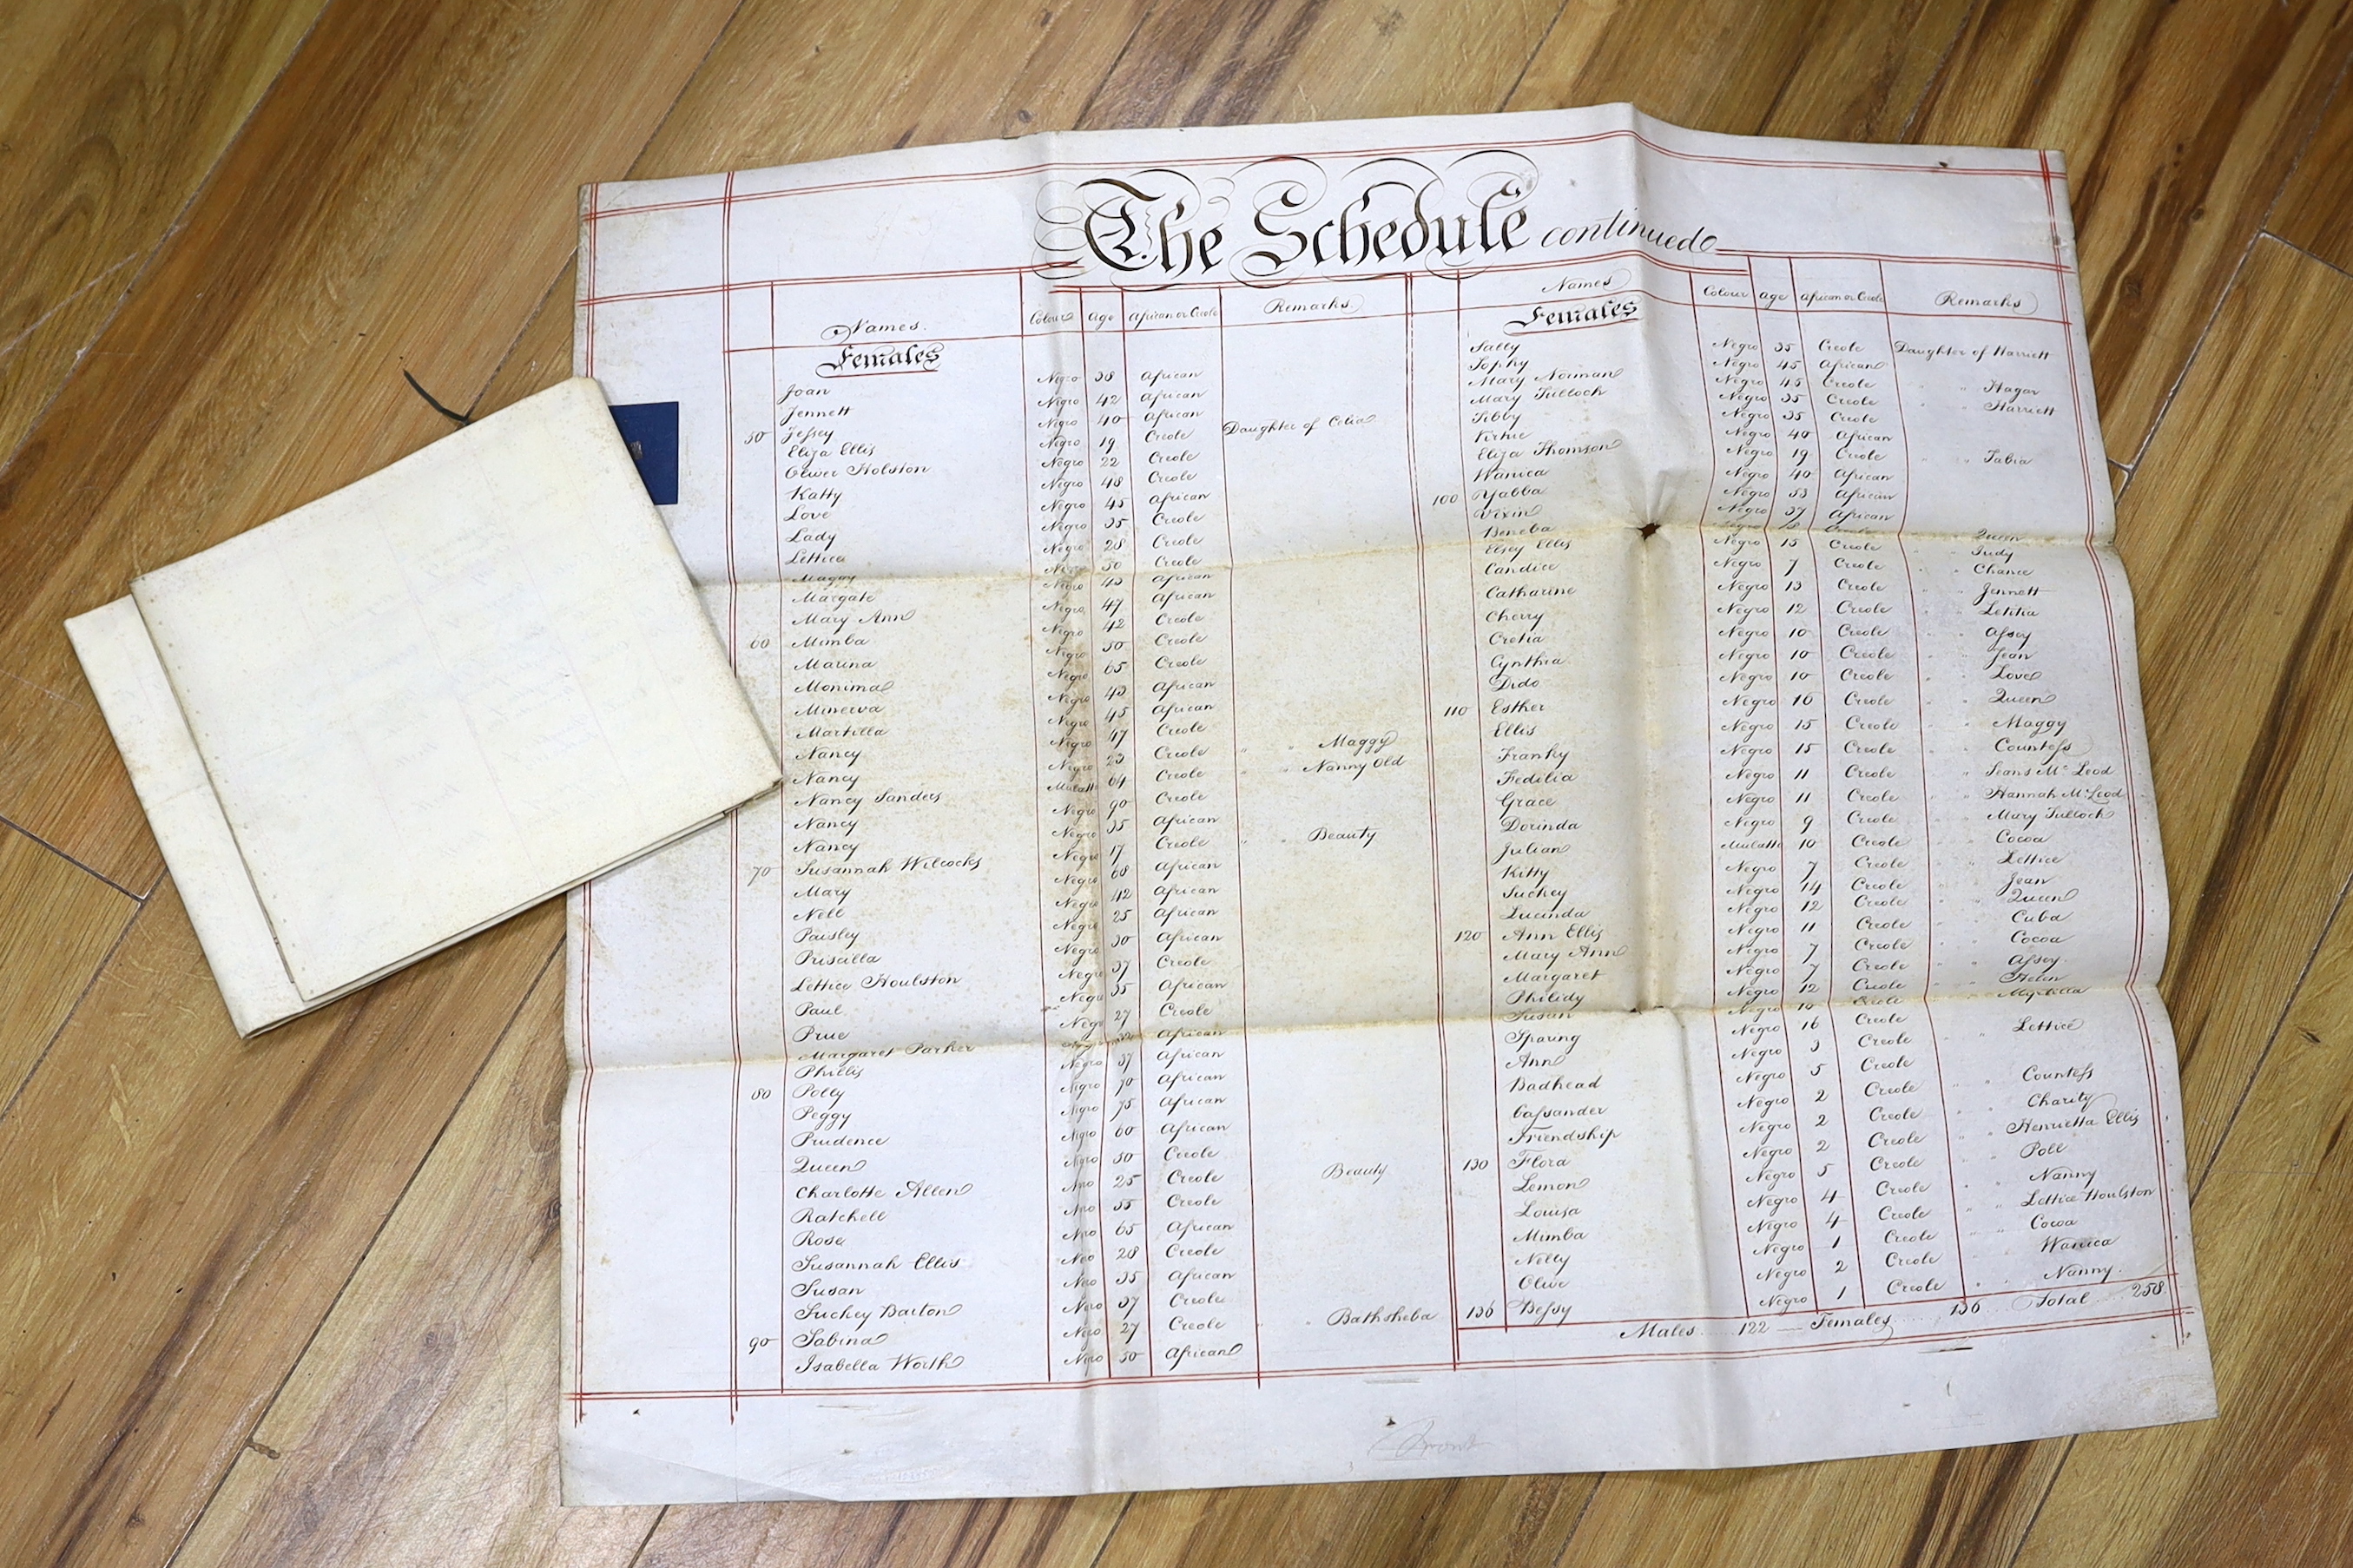 The Schedule continued
Names. Colour Age African or Creole Remarks
Females
Joan Negro 38 African
Jennett Negro 42 African
50 Jessey Negro 40 African
Eliza Ellis Negro 19 Creole Daughter of Celia
Oliver Holston Negro 22 Creole
Katty Negro 48 Creole
Love Negro 45 African
Lady Negro 35 Creole
Lettica Negro 28 Creole
Maggy Negro 50 Creole
Margate Negro 43 African
Mary Ann Negro 47 African
60 Mimba Negro 42 Creole
Marina Negro 50 Creole
Monimal Negro 65 Creole
Minerva Negro 43 African
Martilla Negro 45 African
Nancy Negro 47 Creole
Nancy Negro 23 Creole " " Maggy
Nancy Sanders Mulatto 64 Creole " " Nanny Old
Nancy Negro 90 Creole
Nancy Negro 35 African
70 Susannah Wilcocks Negro 17 Creole " " Beauty
Mary Negro 68 African
Nell Negro 42 African
Paisley Negro 25 African
Priscilla Negro 30 African
Lettice Houlston Negro 37 Creole
Paul Negro 35 African
Prue Negro 27 Creole
Margaret Parker Negro 32 African
Phillis Negro 37 African
80 Polly Negro 70 African
Peggy Negro 75 African
Prudence Negro 60 African
Queen Negro 50 Creole
Charlotte Allen Negro 25 Creole Beauty
Ratchell Negro 55 Creole
Rose Negro 65 African
Susannah Ellis Negro 28 Creole
Susan Negro 35 African
Suckey Barton Negro 37 Creole
90 Sabina Negro 27 Creole " " Bathsheba
Isabella Worth Negro 30 African
Names Colour Age African or Creole Remarks
Females
Sally Negro 35 Creole Daughter of Harriett
Sophy Negro 45 African
Mary Norman Negro 45 Creole " " Hagar
Mary Tulloch Negro 35 Creole " " Harriett
Tibby Negro 35 Creole
Virtue Negro 40 African
Eliza Thomson Negro 19 Creole " " Tabia
Wanica Negro 40 African
100 Yabba Negro 53 African
Vixin Negro 37 African
Beneba Negro 18 Creole " " Queen
Elsey Ellis Negro 15 Creole " " Judy
Candice Negro 7 Creole " " Chance
Catharine Negro 13 Creole " " Jennett
Cherry Negro 12 Creole " " Letitia
Cretia Negro 10 Creole " " Assey
Cynthia Negro 10 Creole " " Jean
Dido Negro 10 Creole " " Love
110 Esther Negro 16 Creole " " Queen
Ellis Negro 15 Creole " " Maggy
Franky Negro 15 Creole " " Countess
Fedilia Negro 11 Creole " " Jeans Mc Leod
Grace Negro 11 Creole " " Hannah McLeod
Dorinda Negro 9 Creole " " Mary Tulloch
Julian Mulatto 10 Creole " " Cocoa
Kitty Negro 7 Creole " " Lettice
Suckey Negro 14 Creole " " Jean
Lucinda Negro 12 Creole " " Queen
120 Ann Ellis Negro 11 Creole " " Cuba
Mary Ann Negro 7 Creole " " Cocoa
Margaret Negro 7 Creole " " Assey
Philidy Negro 12 Creole " " Helen
Susan Negro 10 Creole " " Myrtilla
Sparing Negro 16 Creole " " Lettice
Ann Negro 3 Creole
Badhead Negro 5 Creole
Cassander Negro 2 Creole " " Countess
Friendship Negro 2 Creole " " Charity
130 Flora Negro 2 Creole " " Henrietta Ellis
Lemon Negro 5 Creole " " Poll
Louisa Negro 4 Creole " " Nanny
Mimba Negro 4 Creole " " Lettice Houlston
Nelly Negro 1 Creole " " Cocoa
Olive Negro 2 Creole " " Wanica
136 Bessy Negro 1 Creole " " Nanny
Males 122 — Females 136 Total 258